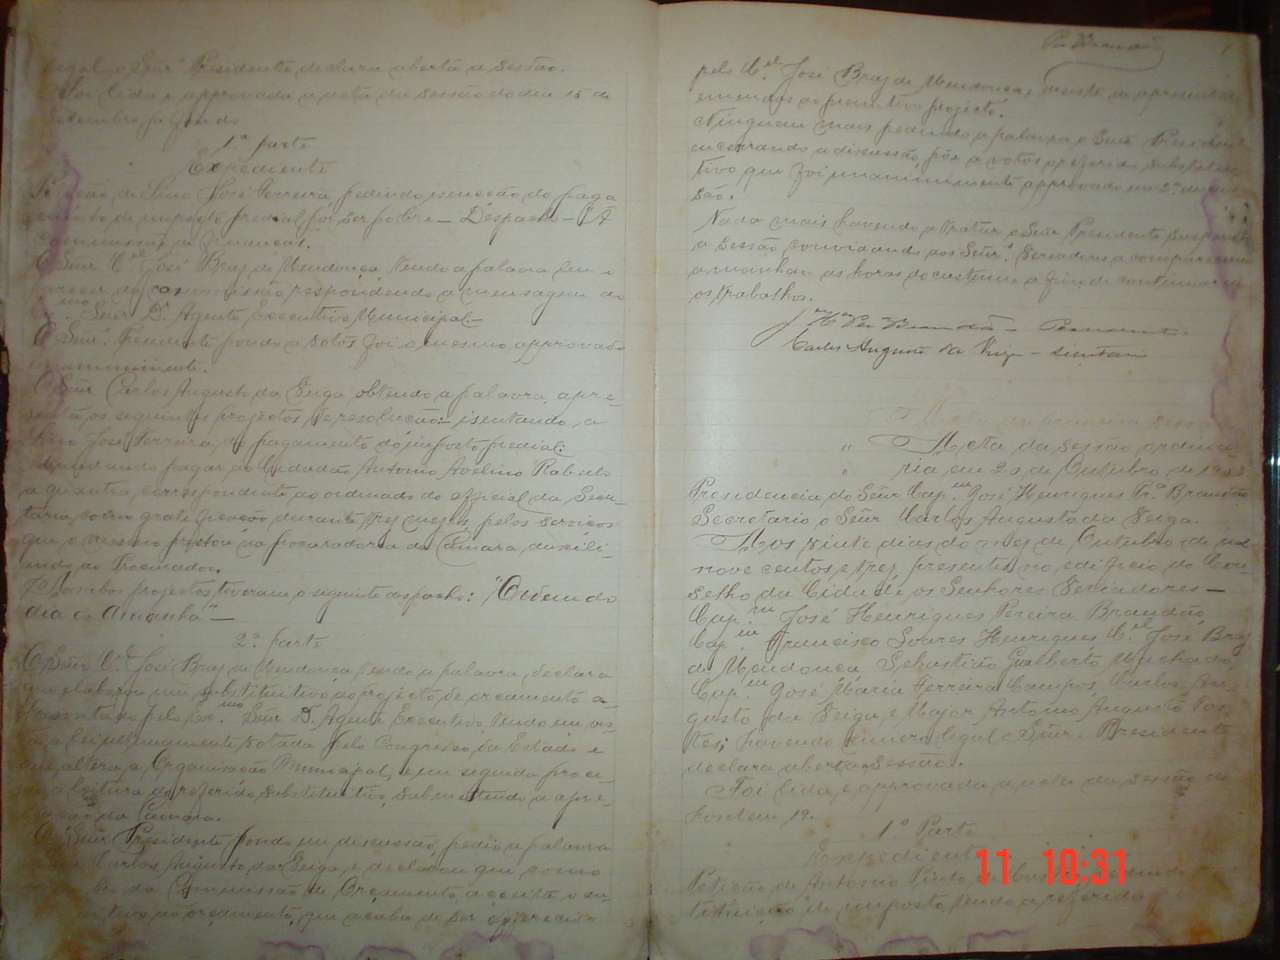 legal, o Señr Presidente declara aberta a sessão.
Foi lida e approvada a acta da sessão do dia 15 de
Setembro p. findo
1ª parte
Expediente
de Lino José Ferreira, pedindo isenção do paga
mento de imposto predial por ser pobre — Despacho — Á
Commissão de finanças.
O Señr Cel José Braz de Mendonça tendo a palavra leu o
parecer da commissão respondendo a mensagem do
Exmo Señr D. Agente Executivo Municipal.
O Señr Presidente pondo a votos foi o mesmo approvado
unanimimente.
O Señr Carlos Augusto da Veiga, obtendo a palavra, apre-
senta os seguintes projectos de resolução: isentando, a
Lino José Ferreira do pagamento do imposto predial:
Mandando pagar ao Cidadão Antonio Avelino Rabello
a quantia correspondente ao ordenado do official da Secre-
taria, como gratificação durante trez mezes, pelos serviços
que o mesmo prestou na procuradoria da Camara, auxili-
ando ao Procurador.
Ambos projectos, tiveram o seguinte despacho: "Ordem do
dia de Amanhã" —
2ª parte
O Señr Cel José Braz de Mendonça tendo a palavra declara
que elaborou um substitutivo ao projecto de orçamento a-
presentado pelo Exmo Señr D. Agente Executivo, tendo em vis-
ta a lei ultimamente votada pelo Congresso do Estado e
que altera a Organisação Municipal, e em seguida proce-
de a leitura do referido substitutivo, submettendo a apre-
ciação da Camara.
O Señr Presidente pondo em discussão, pedio a palavra
o Señr Carlos Augusto da Veiga, e declarou que como
membro da Commissão de Orçamento, acceita o su-
ao orçamento, que acaba de ser offerecido
Per Brandão
pelo Cel José Braz de Mendonça, e desiste de apresentar
emendas ao primitivo projecto.
Ninguem mais pedindo a palavra o Señr Presidente
encerrando a discussão, pôz a votos o referido substitu-
tivo que foi unanimimente approvado em 2ª discus-
são.
Nada mais havendo a tratar o Señr Presidente suspendeo
a sessão convidando aos Señrs Vereadores a comparecerem
amanhan as horas do custume a fim de continuarem
os trabalhos.
J Hes Per Brandão — Presidente.
Carlos Augusto da Veiga — Secretario
Acta da primeira sessão
" Acta da sessão ordina-
" ria em 20 de Outubro de 1903
Presidencia do Señr Capm José Henriques Pra Brandão
Secretario o Señr Carlos Augusto da Veiga.
Aos vinte dias do mez de Outubro de mil
nove centos e trez, presentes no edificio do Con-
selho da Cidade, os Senhores Vereadores —
Capm José Henriques Pereira Brandão
Capm Francisco Soares Henriques, Cel José Braz
de Mendonça, Sebastião Gualberto Machado,
Capm José Maria Ferreira Campos, Carlos Au-
gusto da Veiga, e Major Antonio Augusto
havendo numero legal o Señr. Presidente
declara aberta a sessão.
Foi lida e approvada a acta da sessão de
hontem 19.
1ª Parte
Expediente
Petição de Antonio Pinto
de imposto, tendo a referida
11 10:31